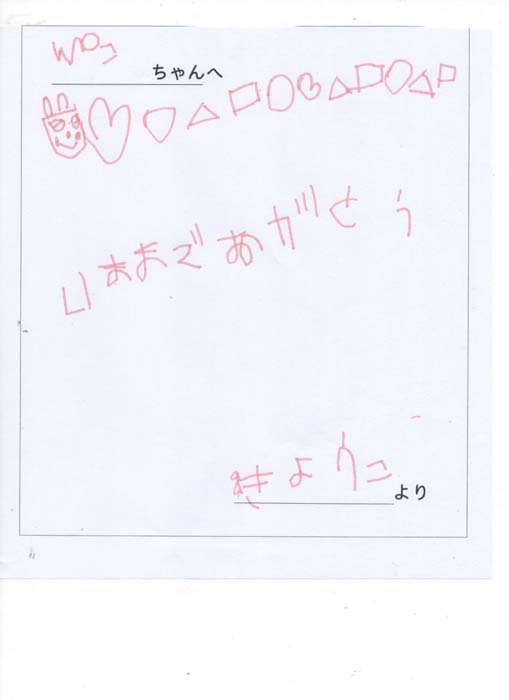 ちゃんへ
いままであがとう
きようこより